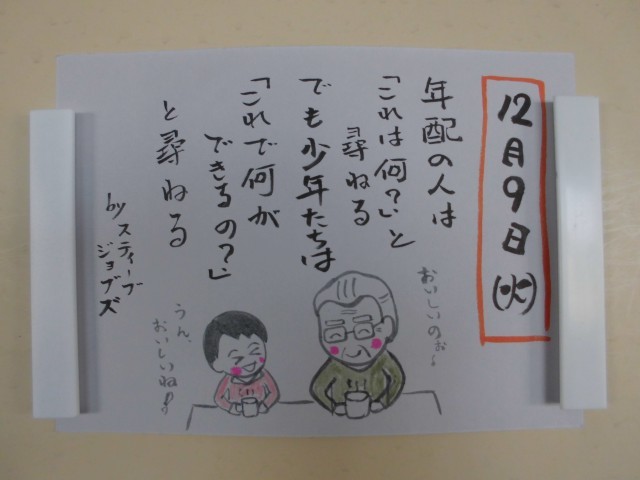 12月9日(火)
年配の人は
「これは何?」と
尋ねる
でも少年たちは
「これで何が
できるの?」
と尋ねる
by スティーブ
ジョブズ
おいしいのぉ〜
うん、
おいしいね♪